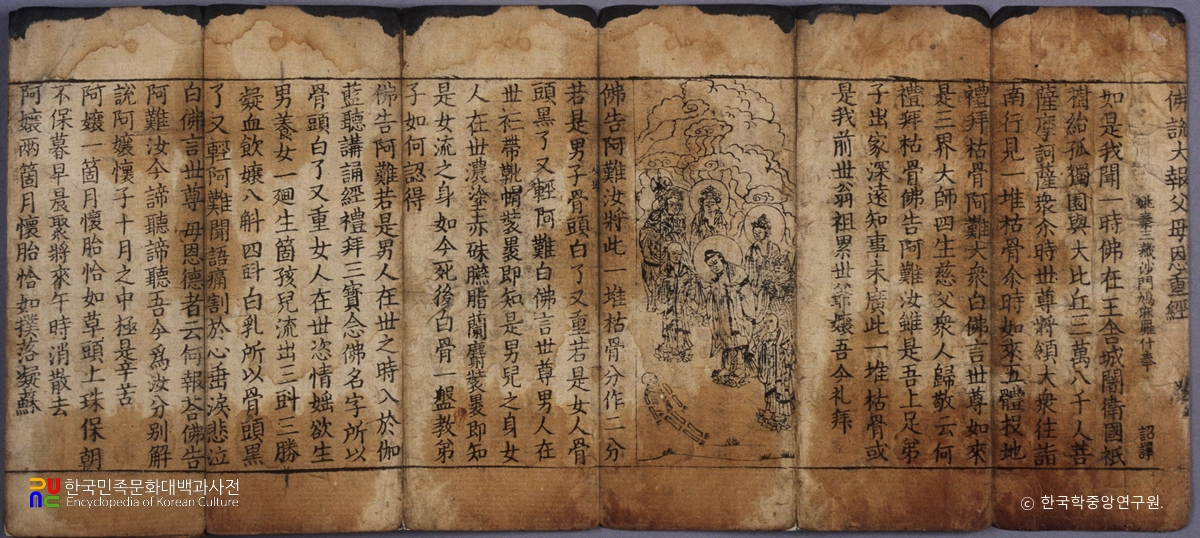 佛說大報父母恩重經
姚秦三藏沙門鳩摩羅什奉 詔譯
如是我聞一時佛在王舍城闍衛國祇
樹給孤獨園與大比丘三萬八千人菩
薩摩訶薩衆尒時世尊將領大衆往詣
南行見一堆枯骨尒時如來五體投地
禮拜枯骨阿難大衆白佛言世尊如來
是三界大師四生慈父衆人歸敬云何
禮拜枯骨佛告阿難汝雖是吾上足弟
子出家深遠知事未廣此一堆枯骨或
是我前世翁祖累世爺孃吾今礼拜
佛告阿難汝將此一堆枯骨分作二分
若是男子骨頭白了又重若是女人骨
頭黑了又輕阿難白佛言世尊男人在
世衫帶靴帽裝裹即知是男兒之身女
人在世濃塗赤硃臙脂蘭麝裝裹即知
是女流之身如今死後白骨一盤教弟
子如何認得
佛告阿難若是男人在世之時入於伽
藍聽講誦經禮拜三寶念佛名字所以
骨頭白了又重女人在世恣情婬欲生
男養女一廻生箇孩兒流出三㪷三勝
凝血飲孃八斛四㪷白乳所以骨頭黑
了又輕阿難聞語痛割於心垂淚悲泣
白佛言世尊母恩德者云何報荅佛告
阿難汝今諦聽諦聽吾今爲汝分別解
說阿孃懷子十月之中極是辛苦
阿孃一箇月懷胎恰如草頭上珠保朝
不保暮早晨聚將來午時消散去
阿孃兩箇月懷胎恰如撲落凝蘇
한국민족문화대백과사전
Encyclopedia of Korean Culture
ⓒ 한국학중앙연구원.